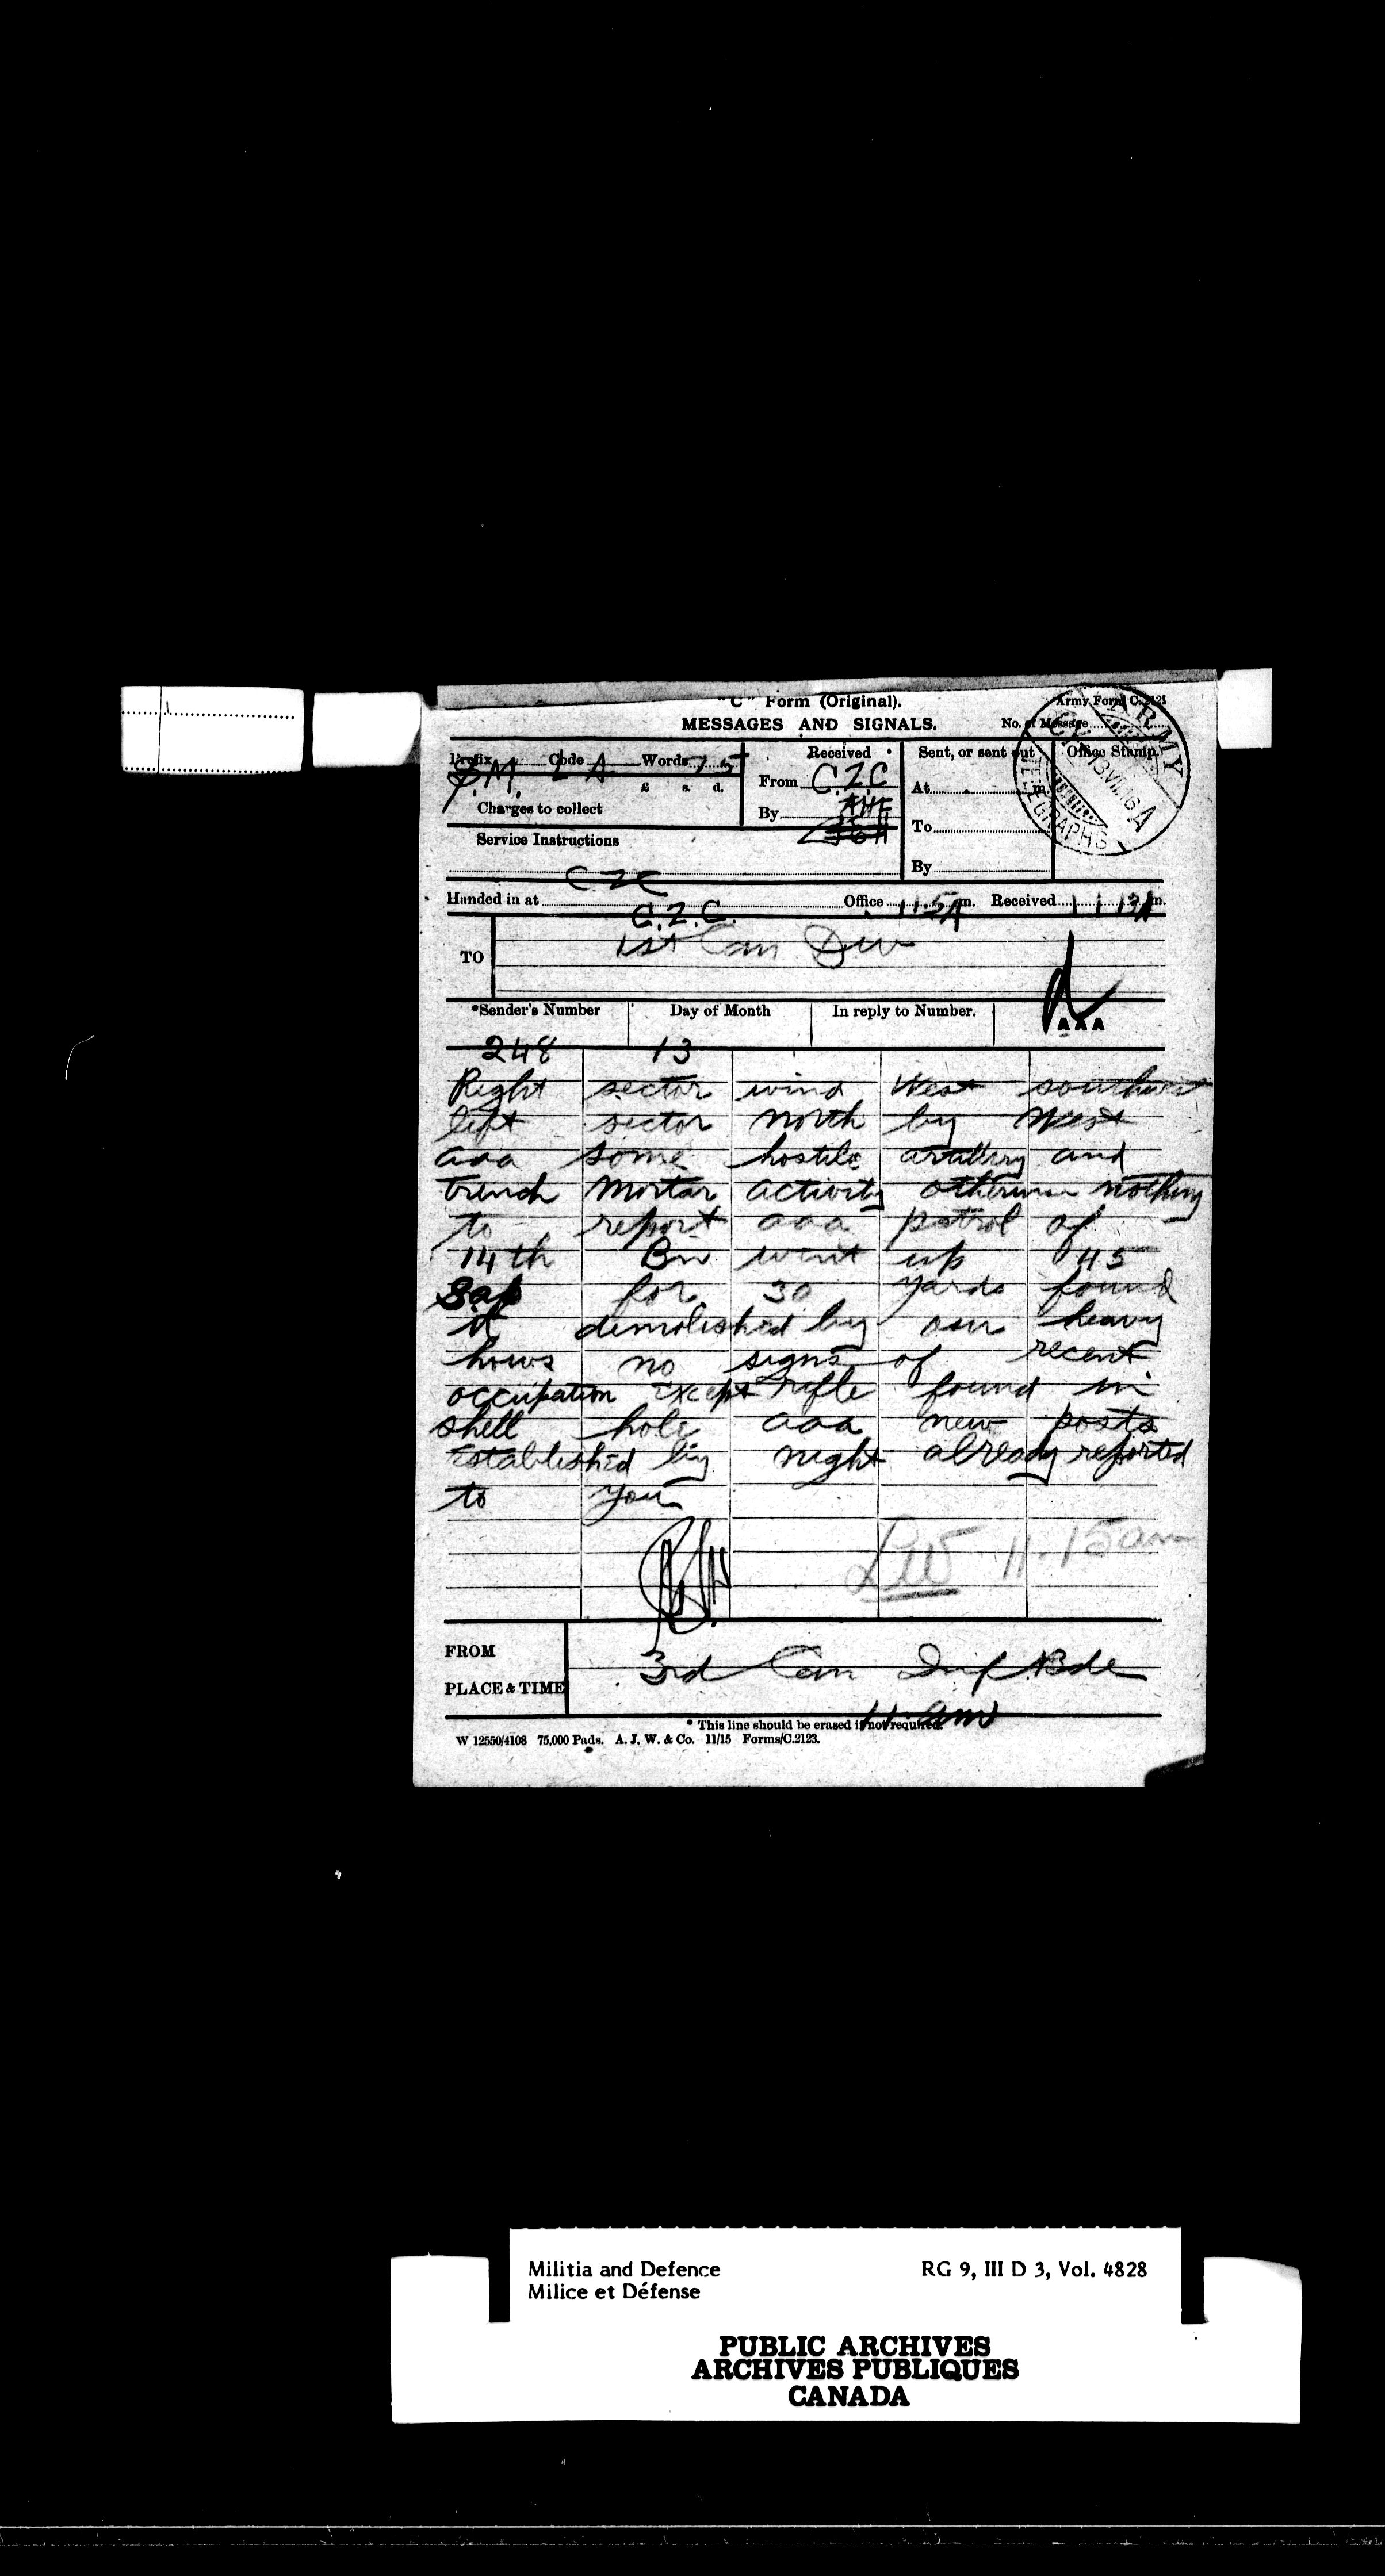 "C" Form (Original).
Army Form C. 2121
MESSAGES AND SIGNALS.
No. of Message
Prefix Code Words 75
£ s. d.
Charges to collect
Received
From C.Z.C
By
Sent, or sent out
At m.
To
By
Office Stamp.
ARMY
TELEGRAPHS
Service Instructions
CZC
Handed in at C.Z.C. Office 11.5A m. Received 11 13A m.
TO 1st Can Div
*Sender's Number Day of Month In reply to Number. AAA
248 13
Right sector wind West southwest
left sector north by West
aaa some hostile artillery and
trench mortar activity otherwise nothing
to report aaa patrol of
14th Bn went up 45
Sap for 30 yards found
it demolished by our heavy
hows no signs of recent
occupation except rifle found in
shell hole aaa new posts
established by night already reported
to you
11.15am
FROM
PLACE & TIME
3rd Can Inf Bde
11 am
* This line should be erased if not required.
W 12550/4108 75,000 Pads. A. J. W. & Co. 11/15 Forms/C.2123.
Militia and Defence
Milice et Défense
RG 9, III D 3, Vol. 4828
PUBLIC ARCHIVES
ARCHIVES PUBLIQUES
CANADA